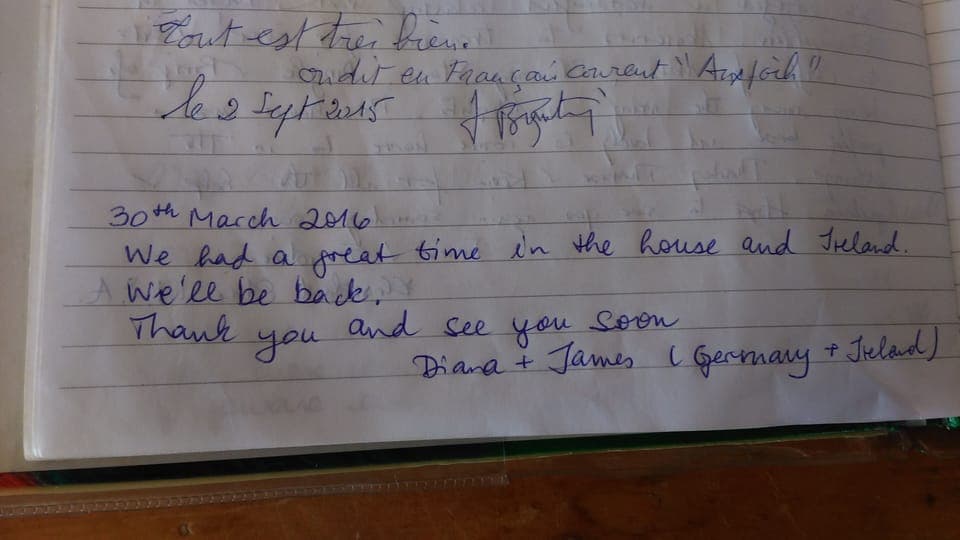 Tout est très bien.
on dit en Français courant "
le 2 Sept 2015
30th March 2016
We had a great time in the house and Ireland.
We'll be back.
Thank you and see you soon
Diana + James (Germany + Ireland)